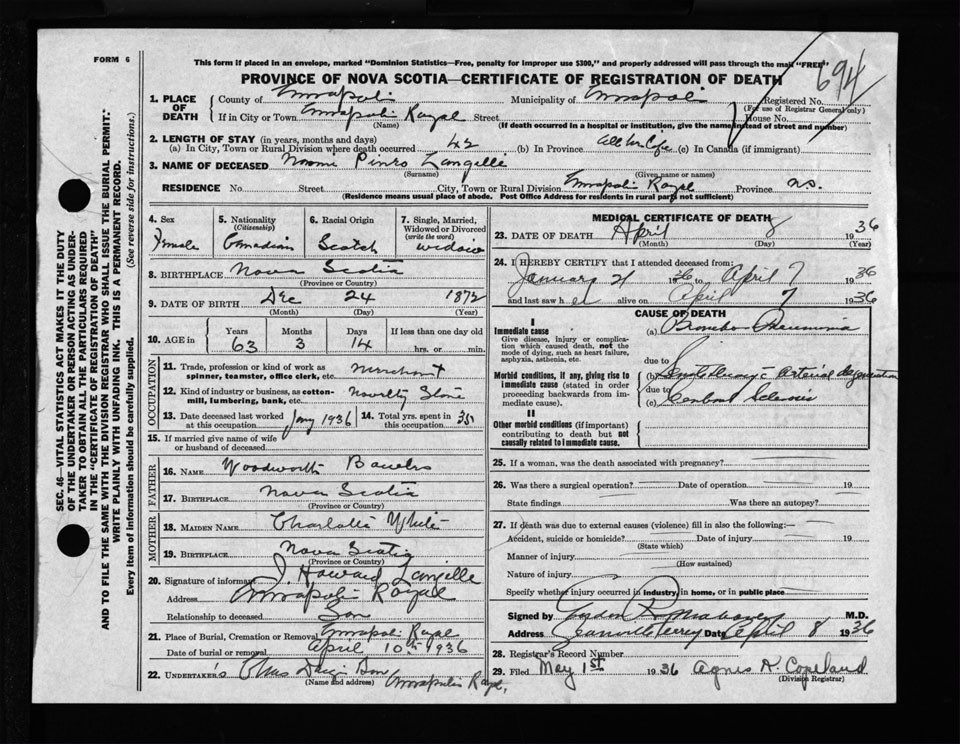 FORM 6
This form if placed in an envelope, marked "Dominion Statistics—Free, penalty for improper use $300," and properly addressed will pass through the mail "FREE"
PROVINCE OF NOVA SCOTIA—CERTIFICATE OF REGISTRATION OF DEATH
694
1. PLACE OF DEATH County of Annapolis Municipality of Annapolis Registered No.
(For use of Registrar General only)
If in City or Town Annapolis Royal Street House No.
(Name) (If death occurred in a hospital or institution, give the name instead of street and number)
2. LENGTH OF STAY (in years, months and days)
(a) In City, Town or Rural Division where death occurred 42 (b) In Province all her life (c) In Canada (if immigrant)
3. NAME OF DECEASED Naomi Langille
(Surname) (Given name or names)
RESIDENCE No. Street City, Town or Rural Division Annapolis Royal Province N.S.
(Residence means usual place of abode. Post Office Address for residents in rural parts not sufficient)
4. Sex Female
5. Nationality (Citizenship) Canadian
6. Racial Origin Scotch
7. Single, Married, Widowed or Divorced (write the word) widow
8. BIRTHPLACE Nova Scotia
(Province or Country)
9. DATE OF BIRTH Dec 24 1872
(Month) (Day) (Year)
10. AGE in Years Months Days If less than one day old
63 3 14 hrs. or min.
OCCUPATION
11. Trade, profession or kind of work as spinner, teamster, office clerk, etc. Merchant
12. Kind of industry or business, as cotton-mill, lumbering, bank, etc. Novelty Store
13. Date deceased last worked at this occupation Jany 1936
14. Total yrs. spent in this occupation 35
15. If married give name of wife or husband of deceased
FATHER
16. NAME Woodworth
17. BIRTHPLACE Nova Scotia
(Province or Country)
MOTHER
18. MAIDEN NAME Charlotte White
19. BIRTHPLACE Nova Scotia
(Province or Country)
20. Signature of informant J. Howard Langille
Address Annapolis Royal
Relationship to deceased Son
21. Place of Burial, Cremation or Removal Annapolis Royal
Date of burial or removal April 10th 1936
22. UNDERTAKER'S
(Name and address) Annapolis Royal,
MEDICAL CERTIFICATE OF DEATH
23. DATE OF DEATH April 8 1936
(Month) (Day) (Year)
24. I HEREBY CERTIFY that I attended deceased from:
January 21 1936 to April 7 1936
and last saw her alive on April 7 1936
CAUSE OF DEATH
I
Immediate cause
Give disease, injury or complication which caused death, not the mode of dying, such as heart failure, asphyxia, asthenia, etc.
(a) Broncho Pneumonia
due to
Morbid conditions, if any, giving rise to immediate cause (stated in order proceeding backwards from immediate cause).
(b) Arterial degeneration
due to
(c) Sclerosis
II
Other morbid conditions (if important) contributing to death but not causally related to immediate cause.
25. If a woman, was the death associated with pregnancy?
26. Was there a surgical operation? Date of operation 19
State findings Was there an autopsy?
27. If death was due to external causes (violence) fill in also the following:—
Accident, suicide or homicide? Date of injury 19
(State which)
Manner of injury
(How sustained)
Nature of injury
Specify whether injury occurred in industry, in home, or in public place
Signed by M.D.
Address Date April 8 1936
28. Registrar's Record Number
29. Filed May 1st 1936 Agnes A. Copeland
(Division Registrar)
SEC. 46—VITAL STATISTICS ACT MAKES IT THE DUTY
OF THE UNDERTAKER OR PERSON ACTING AS UNDER-
TAKER TO OBTAIN ALL THE PARTICULARS REQUIRED
IN THE "CERTIFICATE OF REGISTRATION OF DEATH"
AND TO FILE THE SAME WITH THE DIVISION REGISTRAR WHO SHALL ISSUE THE BURIAL PERMIT.
WRITE PLAINLY WITH UNFADING INK. THIS IS A PERMANENT RECORD.
Every item of information should be carefully supplied. (See reverse side for instructions.)